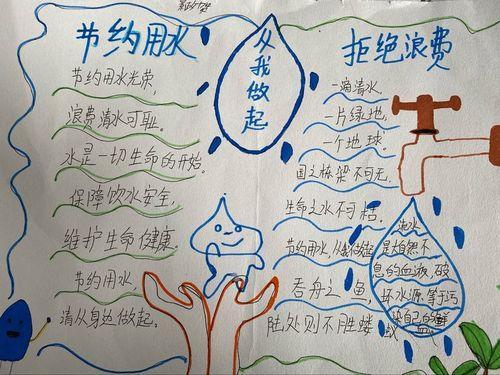 节约用水
节约用水光荣,
浪费清水可耻。
水是一切生命的开始。
保障饮水安全,
维护生命健康。
节约用水,
请从身边做起。
从我做起
拒绝浪费
一滴清水,
一片绿地,
一个地球。
国之栋梁不可无,
生命之水不可枯。
节约用水,从我做起
吞舟之鱼,
陆处则不胜蝼
流水
是焰然不
息的血液,破
坏水源等于污
染自己的鲜